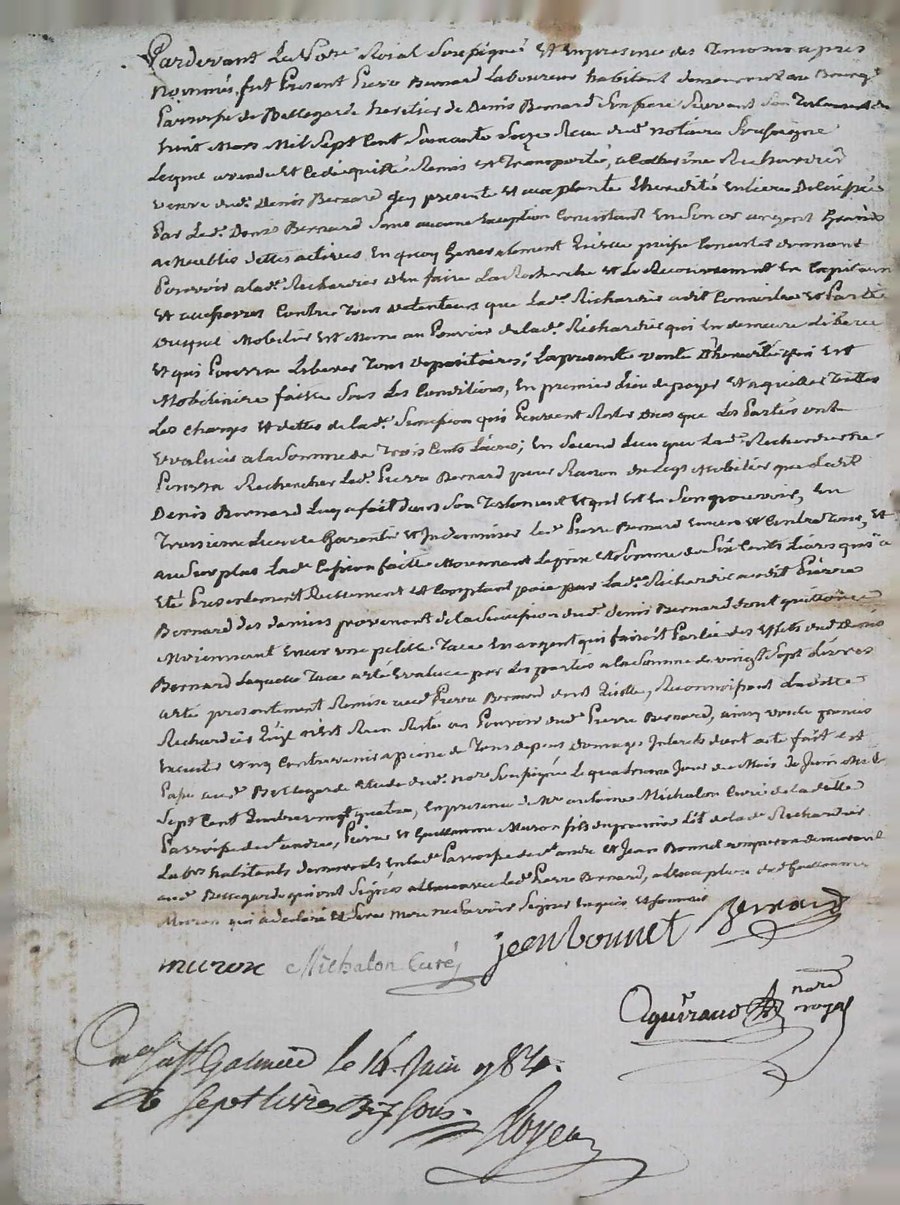 Pardevant Le Notre Roial Soussigné Et En presence des Temoins apres
Nommés, fut Present Pierre Bernard Laboureur habitant demeurant au Bourg
Parroisse de Bellegarde heritier de Denis Bernard Son pere Suivant Son Testament du
huit Mars Mil Sept Cent Soixante Seize Reçu du d. notaire Soussigné
Lequel a vendu et Cedé quitté Remis et Transporté, a Catherine Richardier
veuve du d. Denis Bernard icy presente et acceptante L'heredité Entiere Delaissée
Par Led. Denis Bernard Sans aucune Exception Consistant En Son or argent Grains
Meubles dettes actives En quoy Generalement puisse Consister donnant
Pouvoir a lad. Richardier d'En faire La Recherche et Le Recouvrement En Capitaux
Et contre Tous detenteurs que Lad. Richardier a dit Connoitre Et
Mobilier Est Même au Pouvoir de lad. Richardier qui En demeure Liberée
Et qui Pourra Liberer Tous depositaires; La presente vente D'heredité qui Est
Mobiliaire faitte Sous Les Conditions, En premier Lieu de payer Et aquitter Toutes
Les Charges Et dettes de lad. Sucession qui Peuvent Rester Dues que Les Parties ont
Evaluées a la Somme de Trois Cents Livres; En Second Lieu que Lad. Richardier ne
Pourra Rechercher Led. Pierre Bernard pour Raison du Legs Mobilier que Ledit
Denis Bernard Luy a fait dans Son Testament Et qui Est En Son pouvoir, En
Troisieme Lieu de Garentir et Indemniser Led. Pierre Bernard Envers et Contre Tous, Et
au Surplus Lad. Cession faitte Moyennant Le prix Et Somme de Six Cents Livres qui a
Eté Presentement Reellement et Comptant paié par Lad. Richardier audit Pierre
Bernard des deniers provenant de la Sucession dud. Denis Bernard dont quittance
Moiennant Encor une petitte Tace En argent qui faisoit Partie des Effets dud. Denis
Bernard Laquelle Tace a eté Evaluée par Les parties a la Somme de vingt Sept Livres
a eté presentement Remise aud. Pierre Bernard dont Quitte, Reconnoissant Ladette
Richardier Qu'il n'Est Rien Resté au Pouvoir dud. Pierre Bernard, ainsy voulu promis
Executer et n'y Contrevenir a peine de Tous depens domages Interets dont acte fait et
Passé aud. Bellegarde Etude dud. nore Soussigné Le quatrieme Jour du Mois de Juin Mil
Sept Cent quatre vingt quatre, En presence de Mre antoine Michalon Curé de la ditte
Parroisse de St andré, Pierre et Guillaume Muron fils du premier Lit de la d. Richardier
Labrs habitants demeurants En lad. Parroisse de St andré et Jean Bonnet demeurant
aud. Bellegarde qui ont Signés a Avec Led. Pierre Bernard, a l'exception dud. Guillaume
Muron qui a declaré Et Sa Mere ne Savoir Signer Enquis et Sommés
muron Michalon Curé jean bonnet Bernard
Aguiraud nore royal
Con. a St Galmier le 14 Juin 1784.
R. Sept livres Dix Sous. Royer